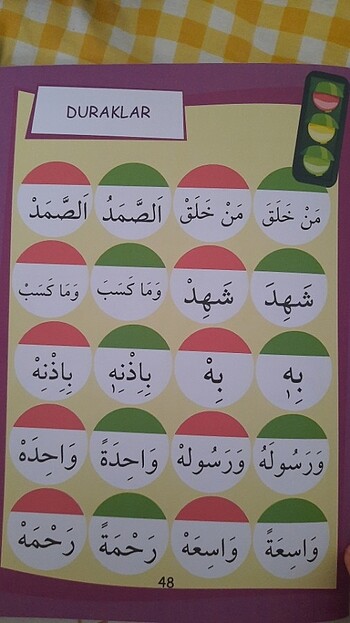 DURAKLAR
مَنْ خَلَقَ مَنْ خَلَقْ اَلصَّمَدُ اَلصَّمَدْ
شَهِدَ شَهِدْ وَمَا كَسَبَ وَمَا كَسَبْ
بِهٖ بِهْ بِاِذْنِهٖ بِاِذْنِهْ
وَرَسُولَهُ وَرَسُولَهْ وَاحِدَةً وَاحِدَهْ
وَاسِعَةً وَاسِعَهْ رَحْمَةً رَحْمَهْ
48